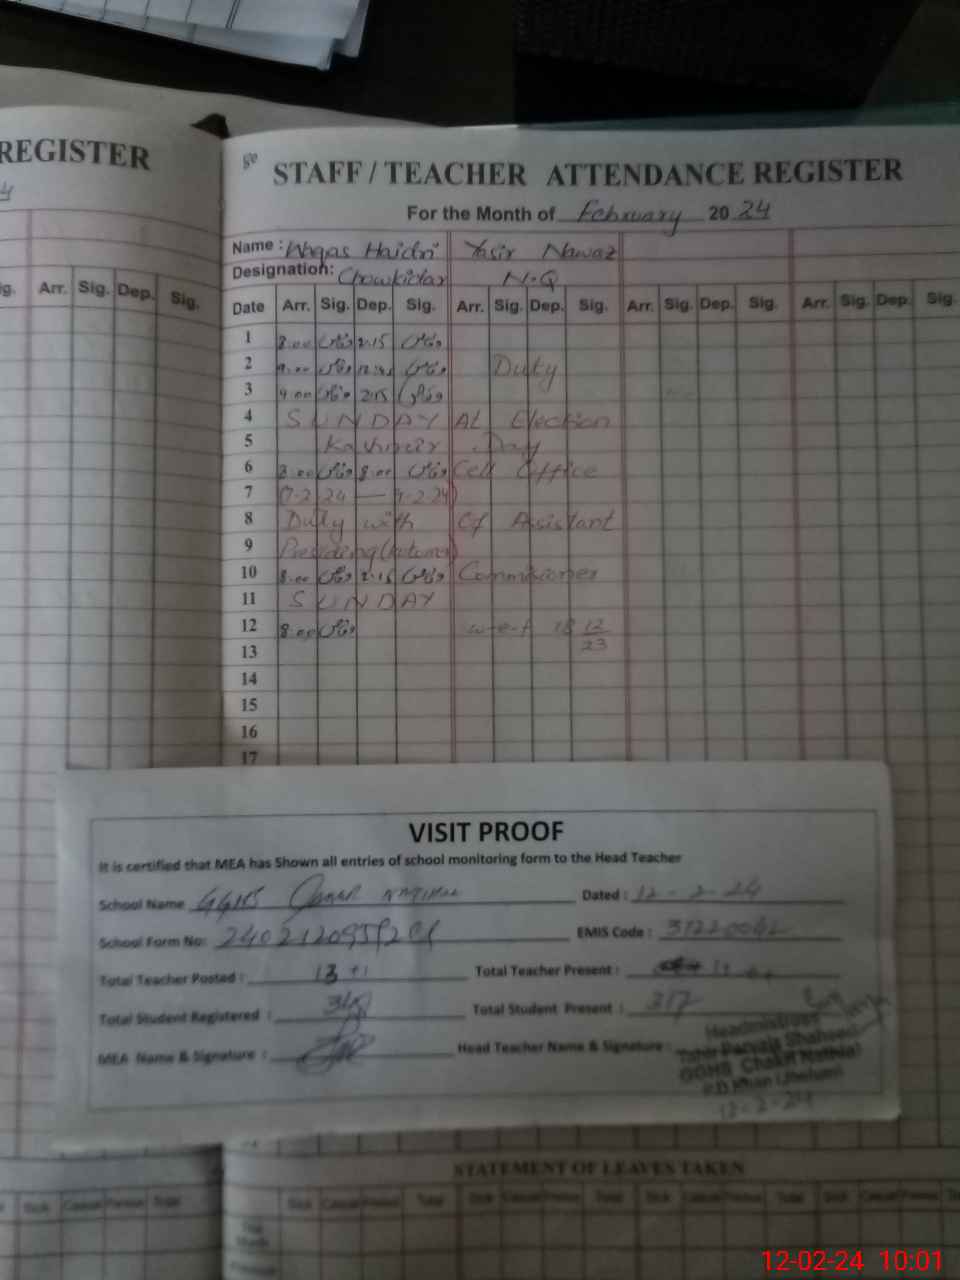 REGISTER
STAFF / TEACHER ATTENDANCE REGISTER
For the Month of February 2024
Name : Waqas Haidri Yasir Nawaz
Designation: Chowkidar N.Q
Arr. Sig. Dep. Sig.
Date Arr. Sig. Dep. Sig. Arr. Sig. Dep. Sig. Arr. Sig. Dep. Sig. Arr. Sig. Dep. Sig.
1 8.00 وقاص 2.15 وقاص
2 وقاص وقاص Duty
3 وقاص 2.15 وقاص
4 SUNDAY At Election
5 Kashmir Day
6 8.00 وقاص 8.00 وقاص Cell Office
7 (7-2-24 — 9-2-24)
8 Duty with of Assistant
9 Presiding
10 8.00 وقاص 2.15 وقاص Commisioner
11 SUNDAY
12 8.00 وقاص w-e-f 18 12/23
13
14
15
16
17
VISIT PROOF
It is certified that MEA has Shown all entries of school monitoring form to the Head Teacher
School Name GGHS Dated : 12-2-24
School Form No: EMIS Code :
Total Teacher Posted : 13+1 Total Teacher Present :
Total Student Registered : Total Student Present : 317
MEA Name & Signature : Head Teacher Name & Signature :
Headmistress
Tahir Parvaja Shaheen
GGHS Chakri
P.D Khan (Jhelum)
12-2-24
STATEMENT OF LEAVES TAKEN
Sick Casual Total Sick Casual Total Sick Casual Total Sick Casual Total Sick Casual
12-02-24 10:01